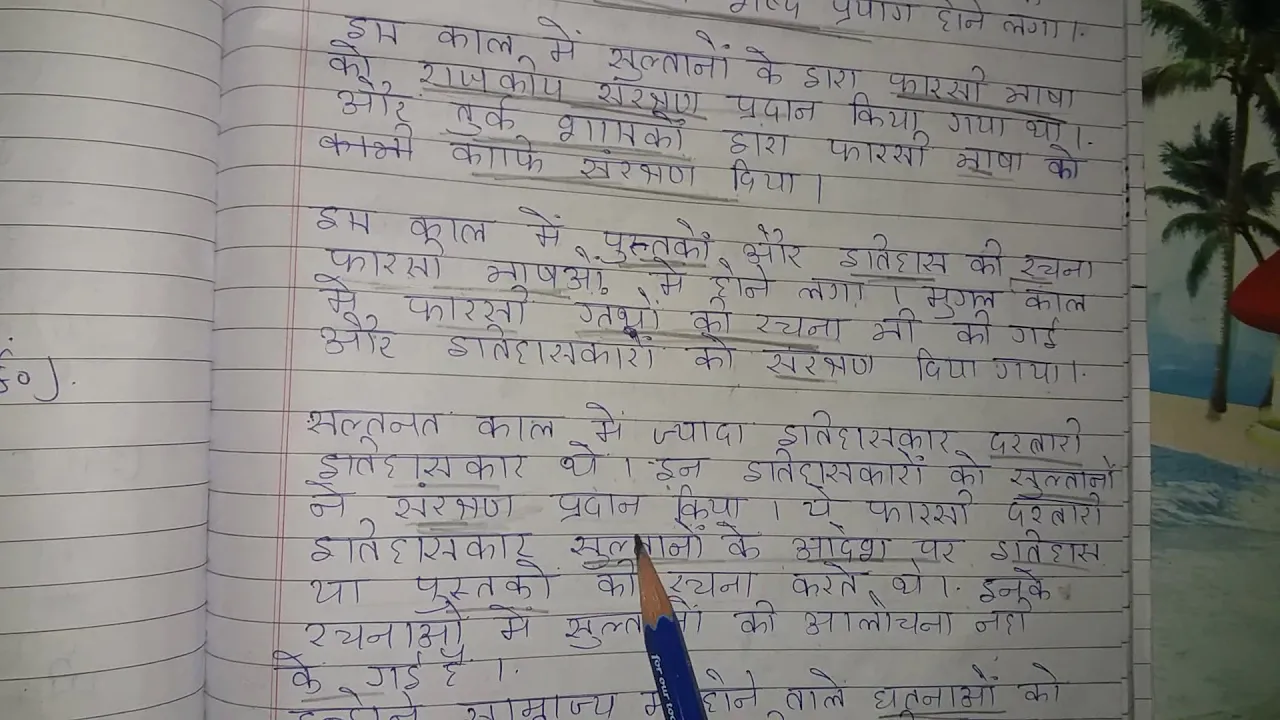 प्रयोग होने लगा।
इस काल में सुल्तानों के द्वारा फारसी भाषा
को राजकीय संरक्षण प्रदान किया गया था।
और तुर्क शासकों द्वारा फारसी भाषा को
काफी संरक्षण दिया।
इस काल में पुस्तकों और इतिहास की रचना
फारसी भाषओं में होने लगा। मुगल काल
में फारसी ग्रंथों की रचना भी की गई
और इतिहासकारों को संरक्षण दिया गया।
सल्तनत काल में ज्यादा इतिहासकार दरबारी
इतिहासकार थे। इन इतिहासकारों को सुल्तानों
ने संरक्षण प्रदान किया। ये फारसी दरबारी
इतिहासकार सुल्तानों के आदेश पर इतिहास
या पुस्तकों की रचना करते थे। इनके
रचनाओं में सुल्तानों की आलोचना नही
के गई है।
साम्राज्य में होने वाले घटनाओं को
for our to